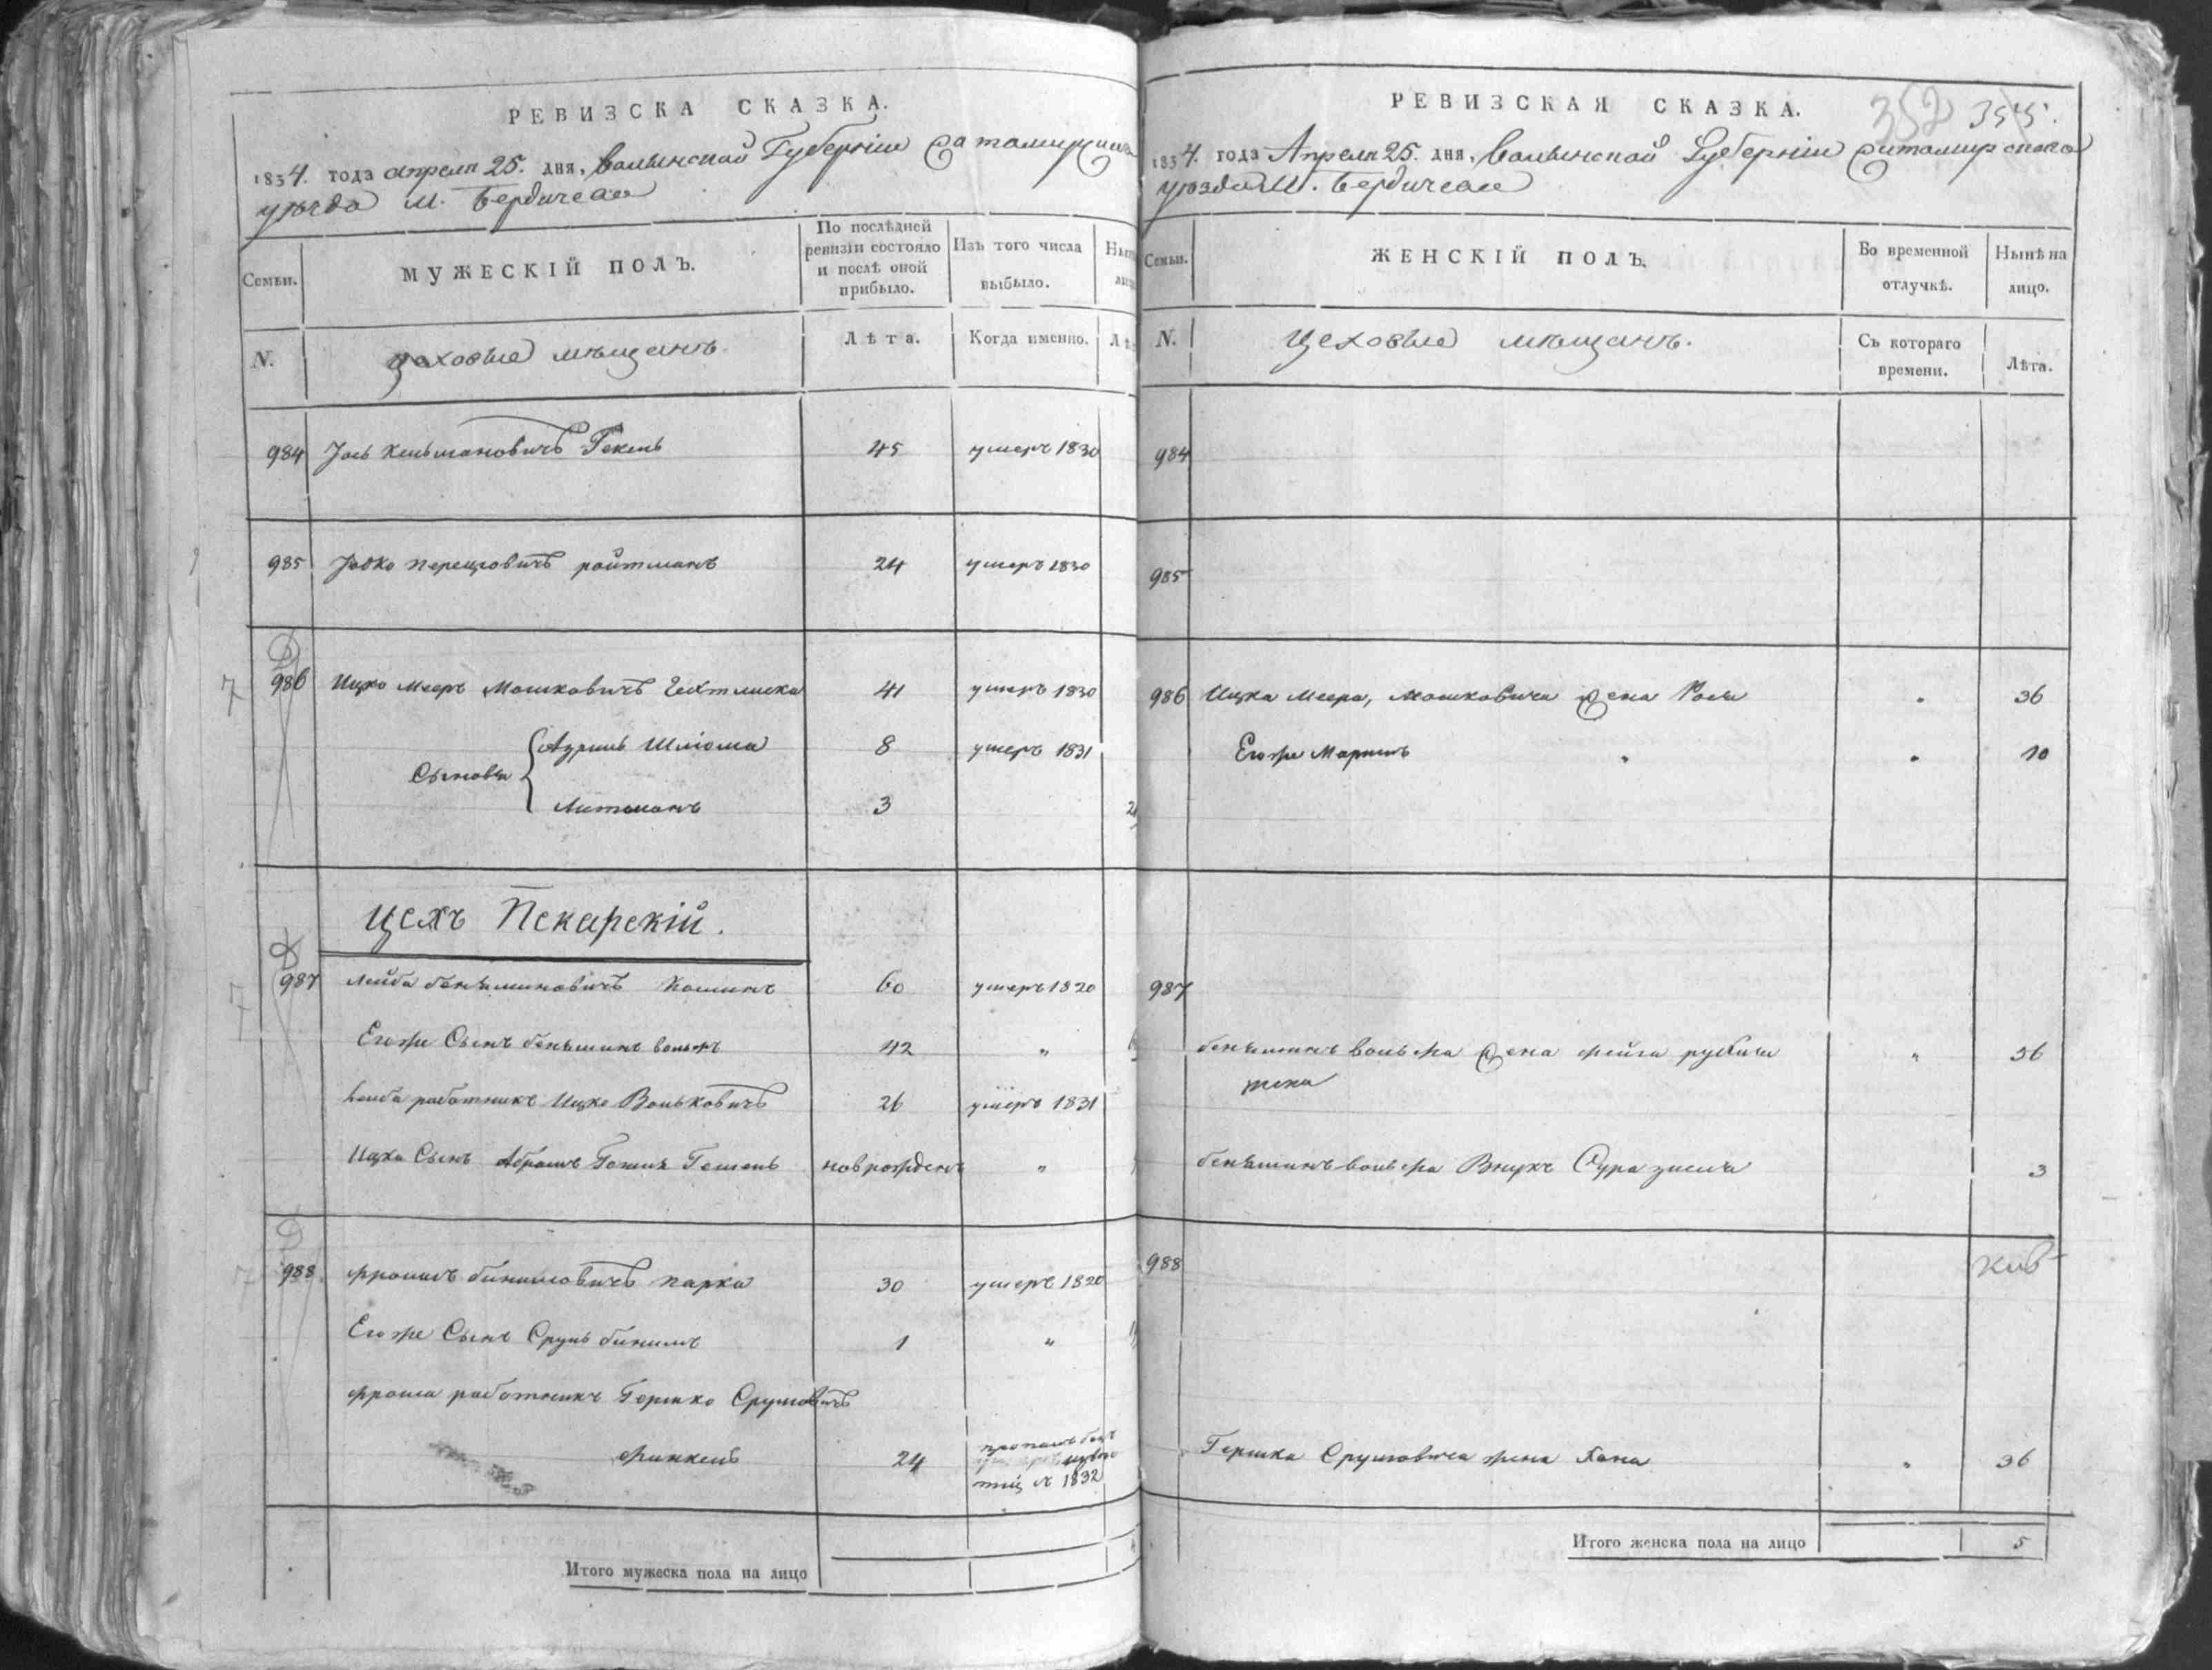 РЕВИЗСКА СКАЗКА.
1834. года апреля 25. дня, Волынской Губерніи Житомирскаго
уезда М. Бердичева
Семьи.
МУЖЕСКІЙ ПОЛЪ.
По послѣдней ревизіи состояло и послѣ оной прибыло.
Изъ того числа выбыло.
N.
цеховые мѣщанъ.
Лѣта.
Когда именно.
984 Іось Кельмановичъ 45 умеръ 1830
985 Іовко Перецовичъ ройтманъ 24 умеръ 1830
986 Ицко Мееръ Мошковичъ 41 умеръ 1830
Сыновья Шліома 8 умеръ 1831
Литманъ 3
Цехъ Пекарскій.
987 Лейба беняминовичъ 60 умеръ 1820
Егоже Сынъ беняминъ вольфъ 42 "
Лейба работникъ Ицко Вольковичъ 26 умеръ 1831
Ицка Сынъ Абрамъ новорожденъ "
988 Фроимъ бинимовичъ парка 30 умеръ 1820
Егоже Сынъ Сруль бинимъ 1 "
Фроима работникъ Гершко Срулювичъ
Финкель 24 пропалъ безъ 1832
Итого мужеска пола на лицо
РЕВИЗСКАЯ СКАЗКА.
352 355.
1834. года Апреля 25. дня, Волынской Губерніи Житомирскаго
уезда М. Бердичева
Семьи.
ЖЕНСКІЙ ПОЛЪ.
Во временной отлучкѣ.
Нынѣ на лицо.
N.
Цеховые мѣщанъ.
Съ котораго времени.
Лѣта.
984
985
986 Ицка Меера, Мошковича жена Рося " 36
Егоже Марьямъ " " 10
987
беняминъ вольфа жена фейга " 56
жена
беняминъ вольфа Внукъ Сура зися 3
988
Гершка Срулювича жена Хана " 36
Итого женска пола на лицо 5